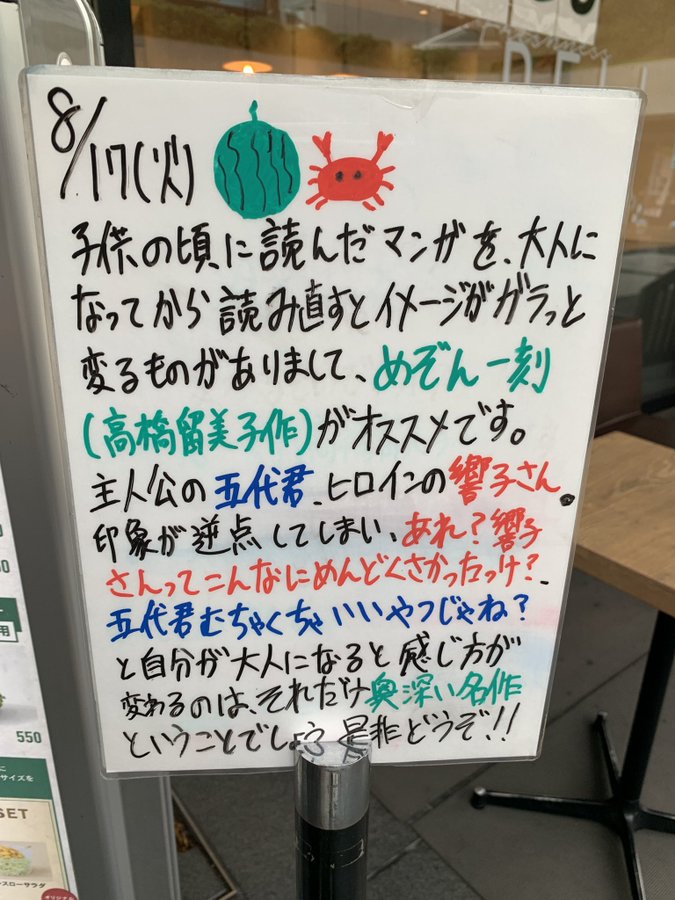 8/17(火)
子供の頃に読んだマンガを、大人に
なってから読み直すとイメージがガラっと
変るものがありまして、めぞん一刻
(高橋留美子作)がオススメです。
主人公の五代君、ヒロインの響子さん。
印象が逆点してしまい、あれ?響子
さんってこんなにめんどくさかったっけ?、
五代君むちゃくちゃいいやつじゃね?
と自分が大人になると感じ方が
変わるのは、それだけ奥深い名作
ということでしょう 是非どうぞ!!
550
サイズを
SET
スローサラダ